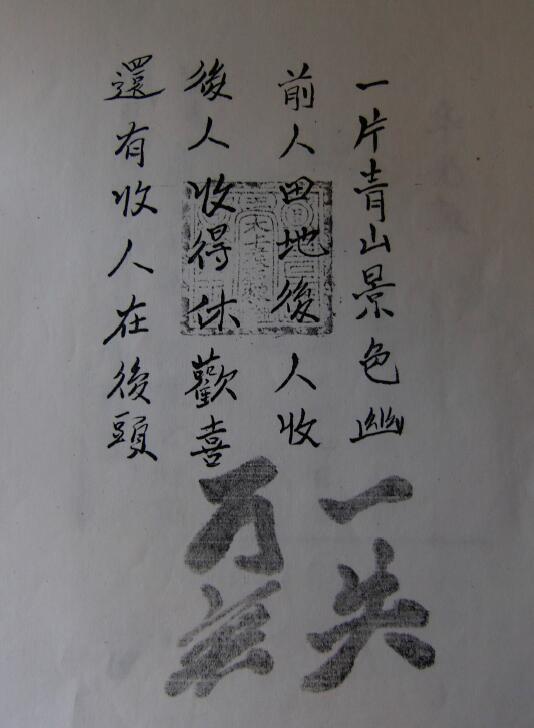 一片青山景色幽
前人田地後人收
後人收得休歡喜
還有收人在後頭
一失
万無